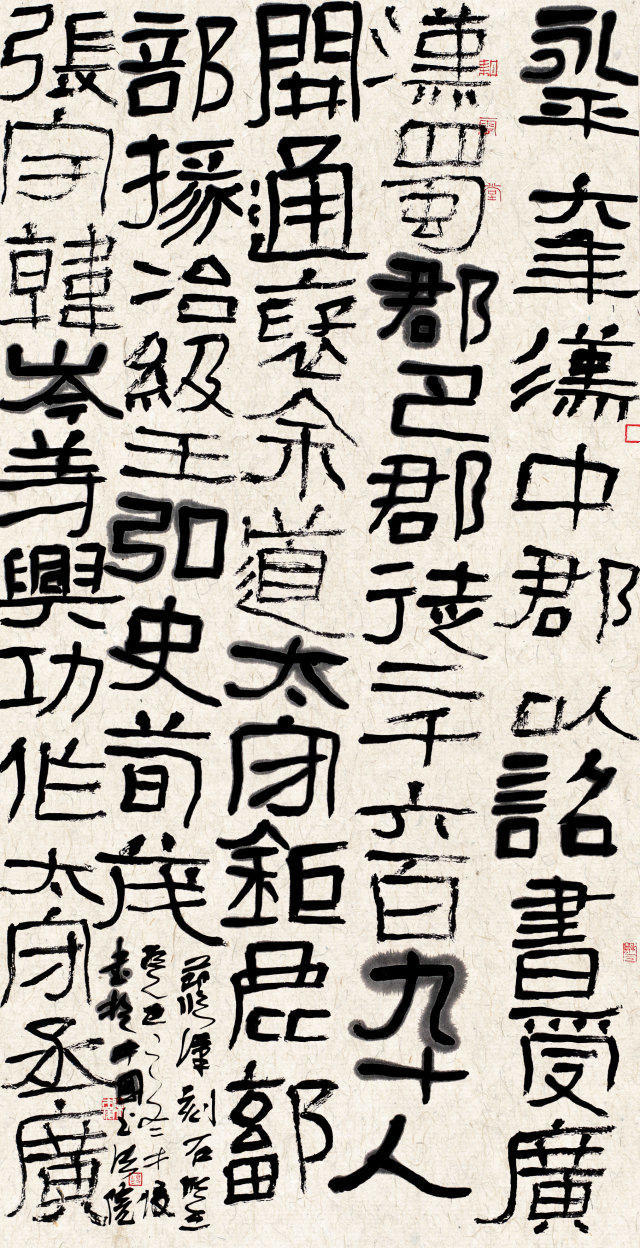 永平六年漢中郡以詔書受廣
漢蜀郡巴郡徒二千六百九十人
開通褒余道太守鉅鹿鄐
部掾冶級王弘史荀茂
張宇韓岑等興功作太守丞廣
節臨漢刻石
癸巳之冬
書於中國書法院